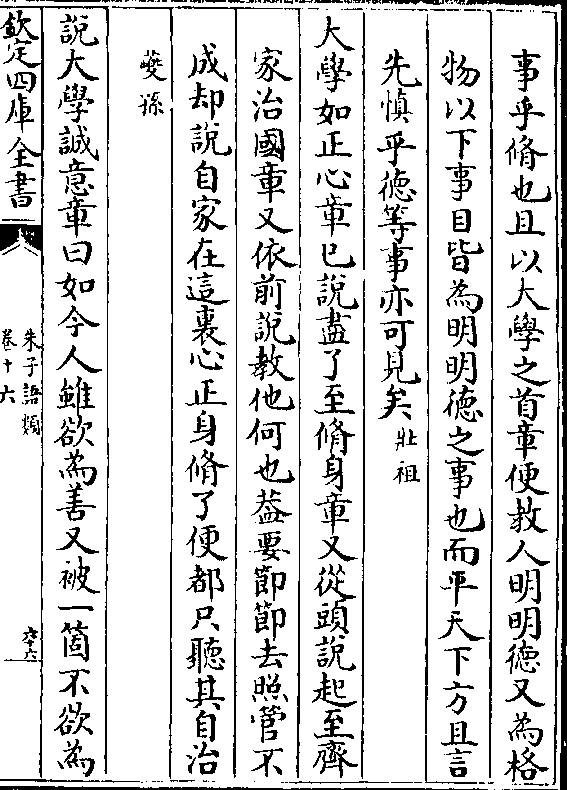 事乎脩也且以大學之首章便教人明明徳又為格
物以下事目皆為明明徳之事也而平天下方且言
先慎乎徳等事亦可見矣 壯祖
大學如正心章已說盡了至脩身章又從頭說起至齊
家治國章又依前說教他何也葢要節節去照管不
成却說自家在這裏心正身脩了便都只聽其自治
䕫孫
說大學誠意章曰如今人雖欲為善又被一箇不欲為
欽定四庫全書
朱子語類
卷十六
六十六